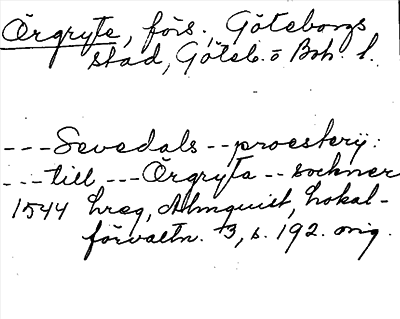 Örgryte, förs., Göteborgs
stad, Göteb. o Boh. l.
---Sevedals--proestery:
---till---Örgryta--sochner
1544 hreg, Almquist, Lokal-
förvaltn. 3, s. 192. orig.